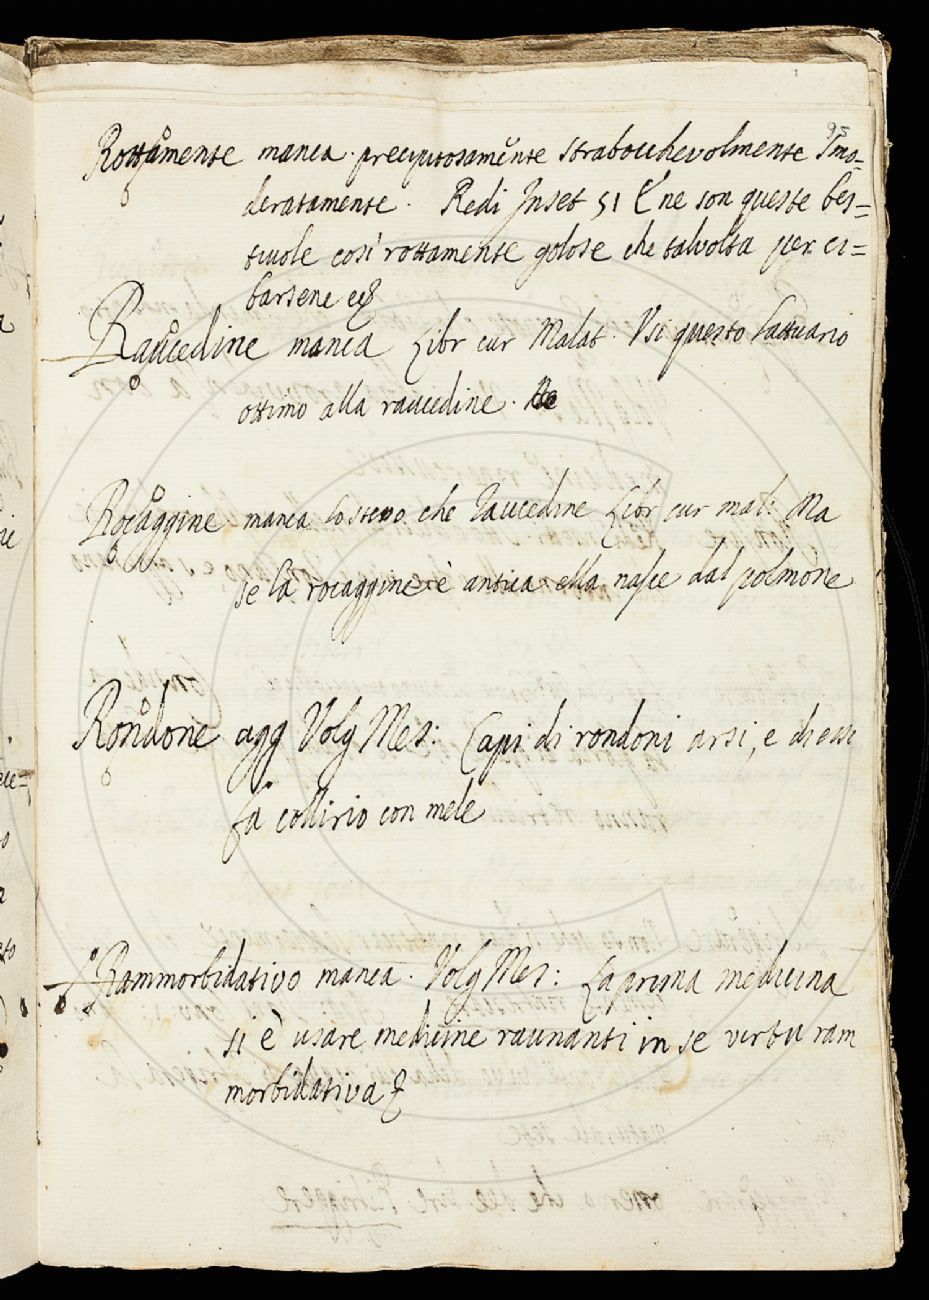 95
Rottamente manca. precipitosamente strabocchevolmente Imo=
deratamente. Redi Inset 51 E ne son queste bes=
tiuole così rottamente golose che talvolta per ci=
barsene
Raucedine manca Libr cur Malat. Usi questo lattuario
ottimo alla raucedine.
Rocaggine manca lo stesso che Raucedine Libr cur mal: Ma
se la rocaggine è antica ella nasce dal polmone
Rondone agg Volg Mes: Capi di rondoni arsi, e di essi
fa collirio con mele
Rammorbidativo manca. Volg Mes: La prima medicina
si è usare medicine raunanti in se virtu ram
morbidativa